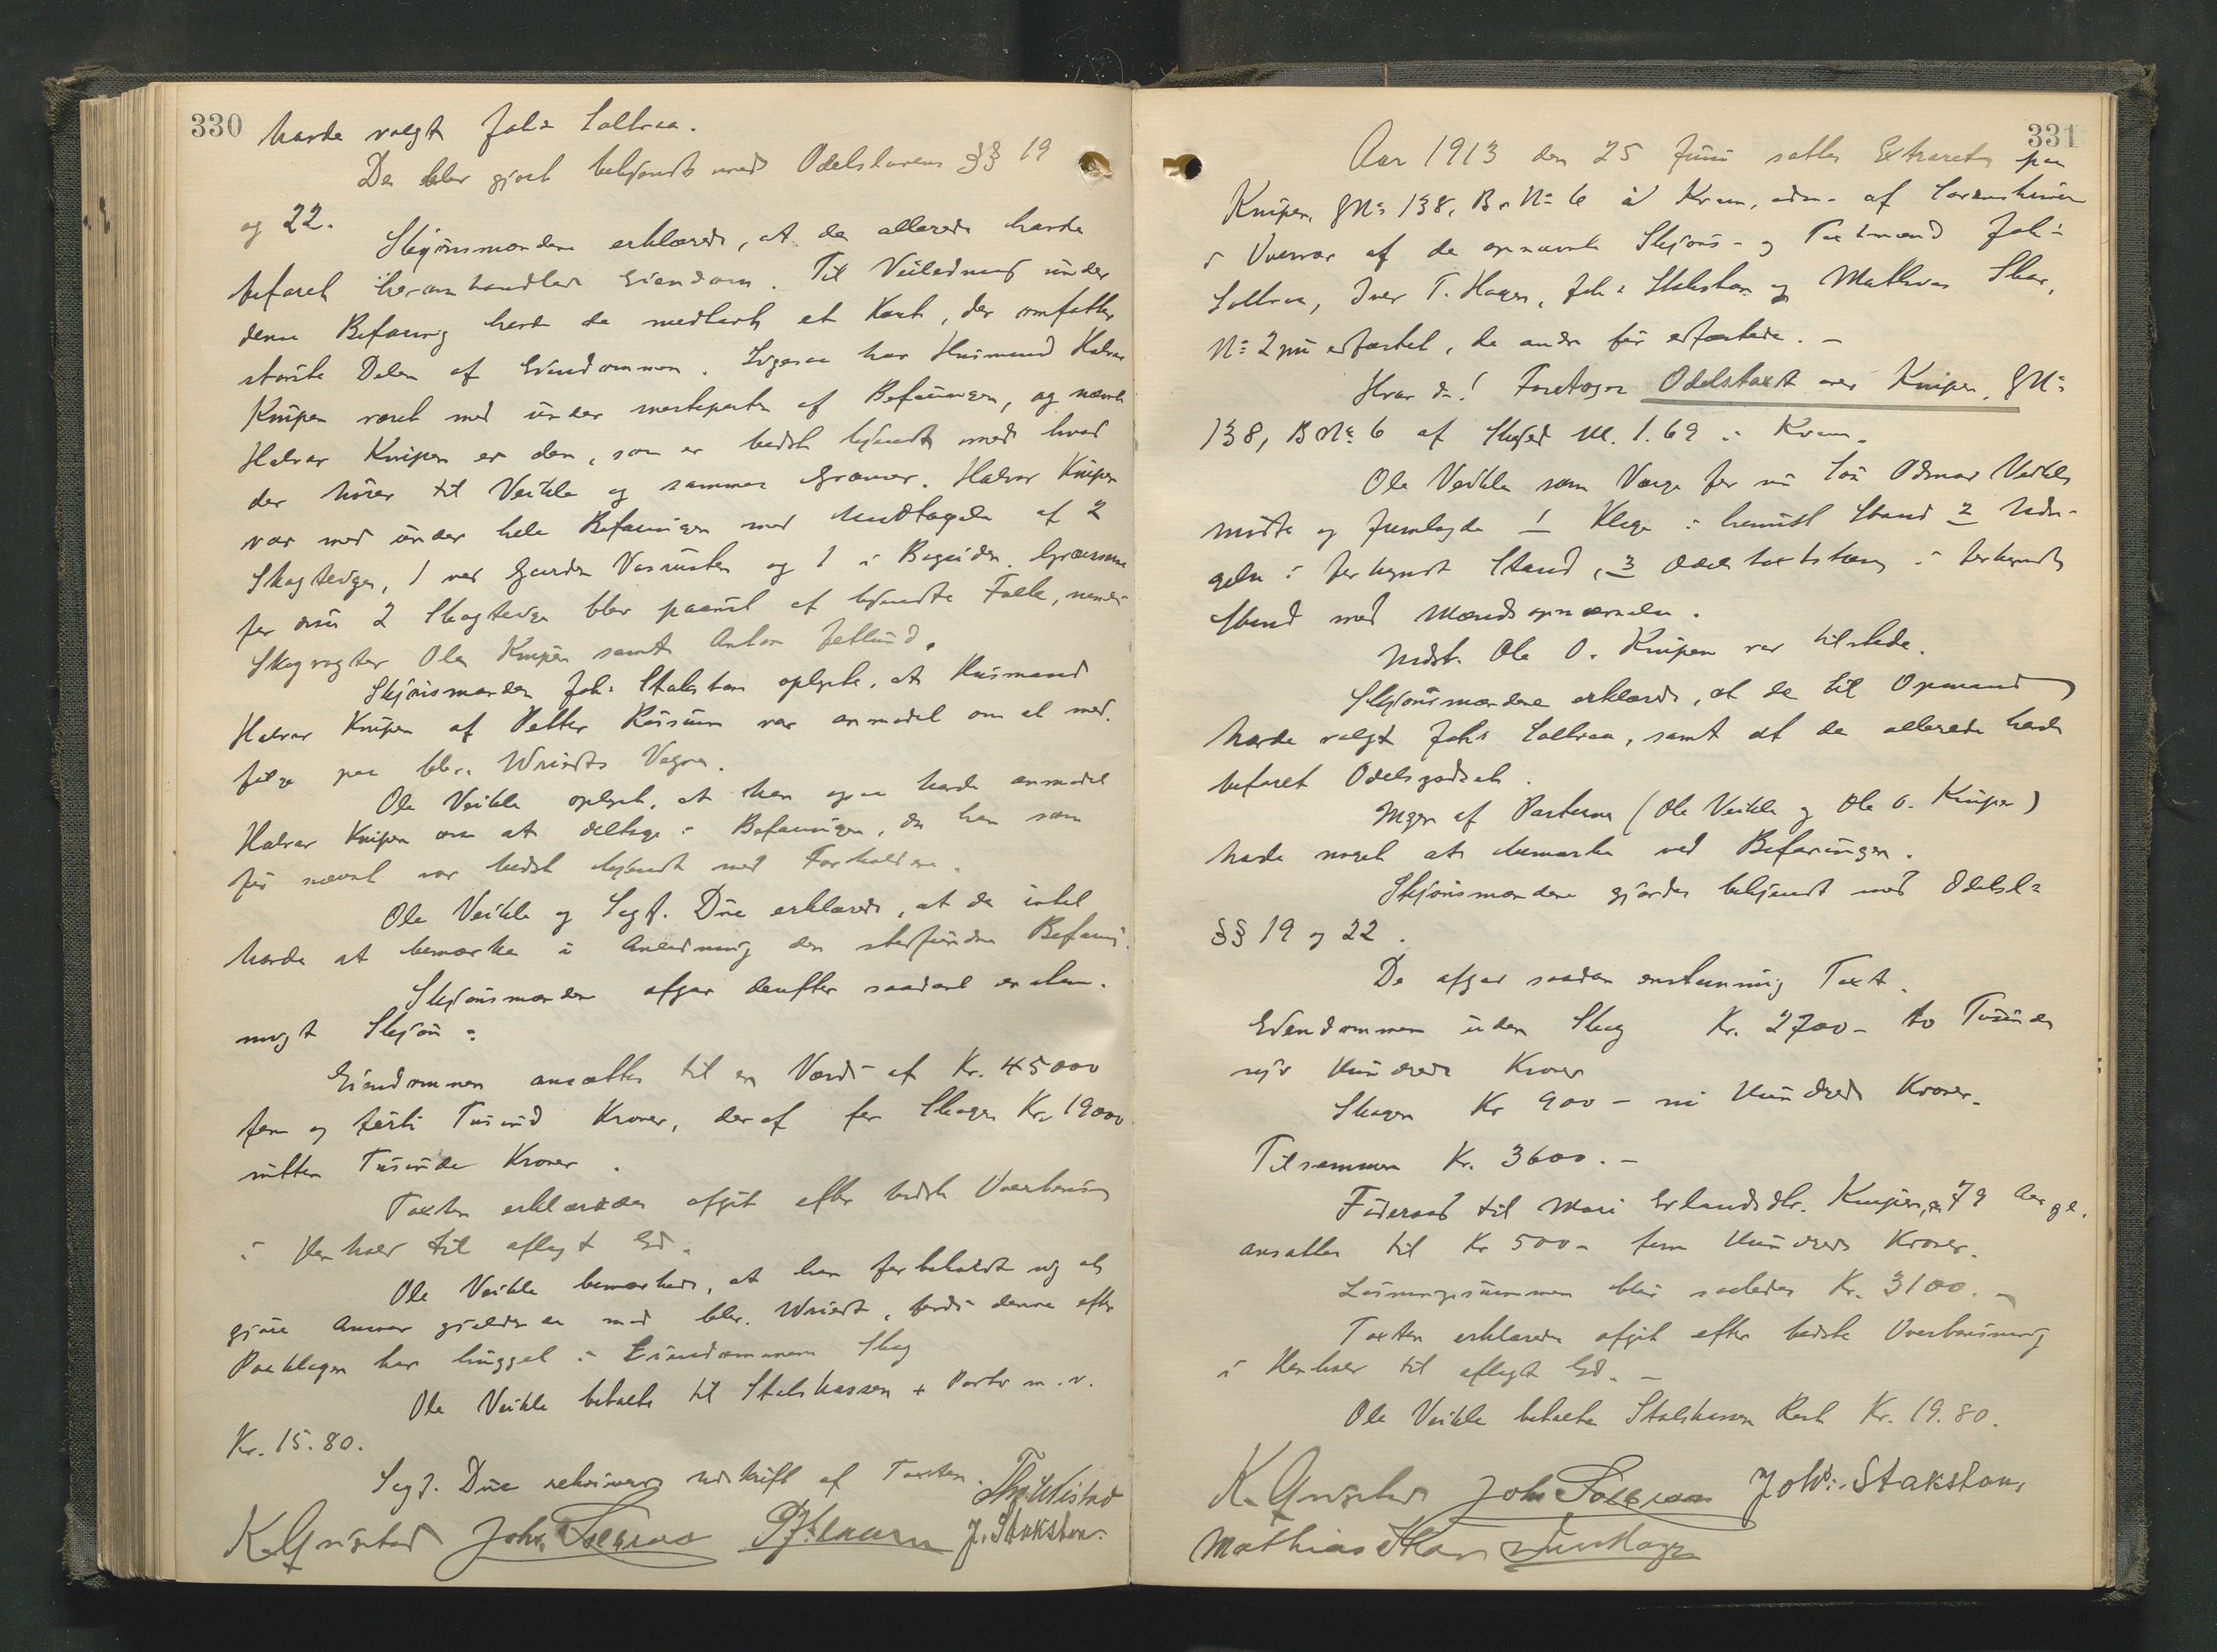 330
havde valgt Joh: Solbraa.
De blev gjort bekjendt med Odelslovens §§ 19
og 22.
Skjønsmændene erklærede, at de allerede havde
befaret heromhandlede Eiendom. Til Veiledning under
denne Befaring havde de medhavt et Kart, der omfatter
største Delen af Eiendommen. Ligesaa har Husmand Halvor
Knipen været med under mesteparten af Befaringen, og nævnte
Halvor Knipen er den, som er bedst kjendt med hvad
der hører til Veikle og sammes Grænser. Halvor Knipen
var med under hele Befaringen med Undtagelse af 2
Skogteiger, 1 ved Gaarden og 1 i Bøgeiden. Grænserne
for disse 2 Skogteiger blev paavist af kjendte Folk, nemlig
Skogvogter Ole Knipen samt Anton Jetlund.
Skjønsmanden Joh: Stakston oplyste, at Husmand
Halvor Knipen af Petter Røssum var anmodet om at med-
følge paa Vegne.
Ole Veikle oplyste, at han ogsaa havde anmodet
Halvor Knipen om at deltage i Befaringen, da han som
før nævnt var bedst kjendt med Forholdene.
Ole Veikle og Sagf. Due erklærede, at de intet
havde at bemærke i Anledning den stedfundne Befaring.
Skjønsmændene afgav derefter saadant enstem-
migt Skjøn:
Eiendommen ansættes til en Værdi af Kr. 45000
fem og førti Tusind Kroner, deraf for Skogen Kr. 19000
nitten Tusinde Kroner.
Taxten erklæredes afgit efter bedste Overbevisning
i Henhold til aflagt Ed.
Ole Veikle bemærkede, at han forbeholdt sig at
gjøre Ansvar gjældende mod Wriedt, fordi denne efter
Paaklagen har hugget i Eiendommens Skog
Ole Veikle betalte til Statskassen + Porto m.v.
Kr. 15.80.
Sagf. Due rekvirerer Udskrift af Taxten.
K. Grigstad Joh. Solbraa J. Stakston.
331
Aar 1913 den 25 Juni sattes Extraret paa
Knipen, GNo 138, BrNo 6 i Kvam, adm. af Sorenskriveren
i Overvær af de opnævnte Skjøns- og Taxtmænd Joh:
Solbraa, Iver T. Hagen, Joh: Stakston og Mathias Skar,
No 2 nu edfæstet, de andre før edfæstede. –
Hvor da! Foretoges Odelstaxt over Knipen, GNo
138, BNo 6 af Skyld M. 1.69 i Kvam.
Ole Veikle som Værge for sin Søn Odmar Veikle
mødte og fremlagde 1 Klage i hevist Stand 2 Udsi-
gelse i forkyndt Stand, 3 Odelstaxtstævning i forkyndt
Stand med Mandsopnævnelse.
Indst. Ole O. Knipen var tilstede.
Skjønsmændene erklærede, at de til Opmand
havde valgt Joh: Solbraa, samt at de allerede havde
befaret Odelsgodset.
Ingen af Parterne (Ole Veikle og Ole O. Knipen)
havde noget at bemærke ved Befaringen.
Skjønsmændene gjordes bekjendt med Odelsl:
§§ 19 og 22.
De afgav saadan enstemmig Taxt.
Eiendommen uden Skog Kr. 2700– to Tusinde
syv Hundrede Kroner
Skogen Kr 900 – ni Hundrede Kroner.
Tilsammen Kr. 3600.–
Føderaad til Mari Erlandsdtr. Knipen, 79 Aar gl.
ansattes til Kr 500– fem Hundrede Kroner.
Løsningssummen blir saaledes Kr. 3100.–
Taxten erklæredes afgit efter bedste Overbevisning
i Henhold til aflagt Ed. –
Ole Veikle betalte Statskassen Rest Kr. 19.80.
K. Grigstad Joh Solbraa Johs. Stakston,
Mathias Skar Iver Hagen